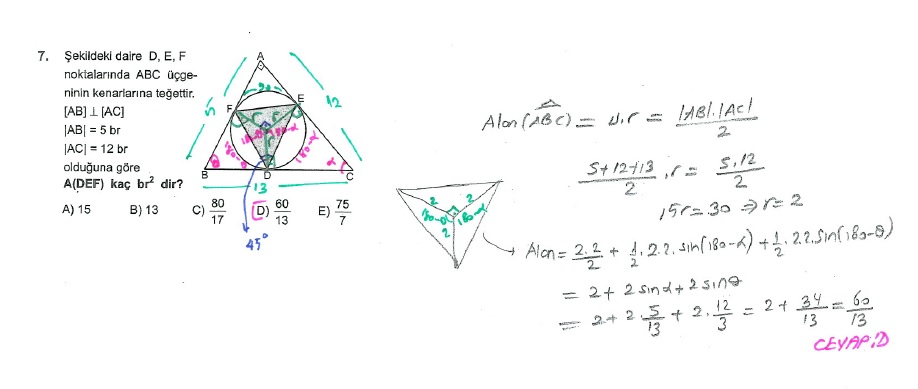 7. Şekildeki daire D, E, F
noktalarında ABC üçge-
ninin kenarlarına teğettir.
[AB] ⊥ [AC]
|AB| = 5 br
|AC| = 12 br
olduğuna göre
A(DEF) kaç br² dir?
A) 15 B) 13 C) 80/17 D) 60/13 E) 75/7
A
90
5
12
F
E
r
r
r
180-θ
180-α
θ
α
B
D
C
13
45°
Alan(ABC) = u.r = |AB|.|AC|/2
5+12+13/2 . r = 5.12/2
15r = 30 ⇒ r = 2
2
2
180-θ
180-α
2
→ Alan = 2.2/2 + 1/2.2.2.sin(180-α) + 1/2.2.2.sin(180-θ)
= 2 + 2 sinα + 2 sinθ
= 2 + 2.5/13 + 2.12/3 = 2 + 34/13 = 60/13
CEVAP:D